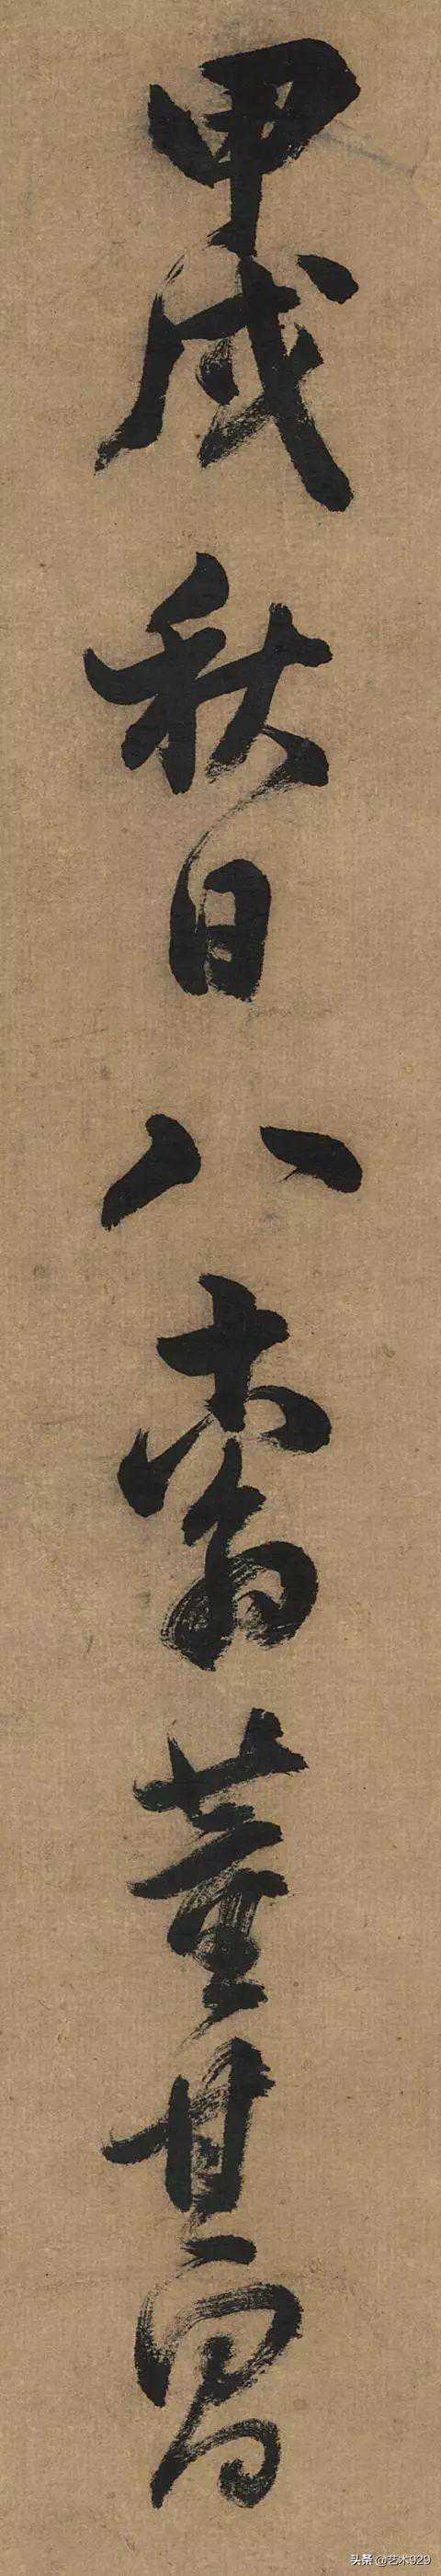 甲戌秋日八十翁董其昌
头条 @艺术929